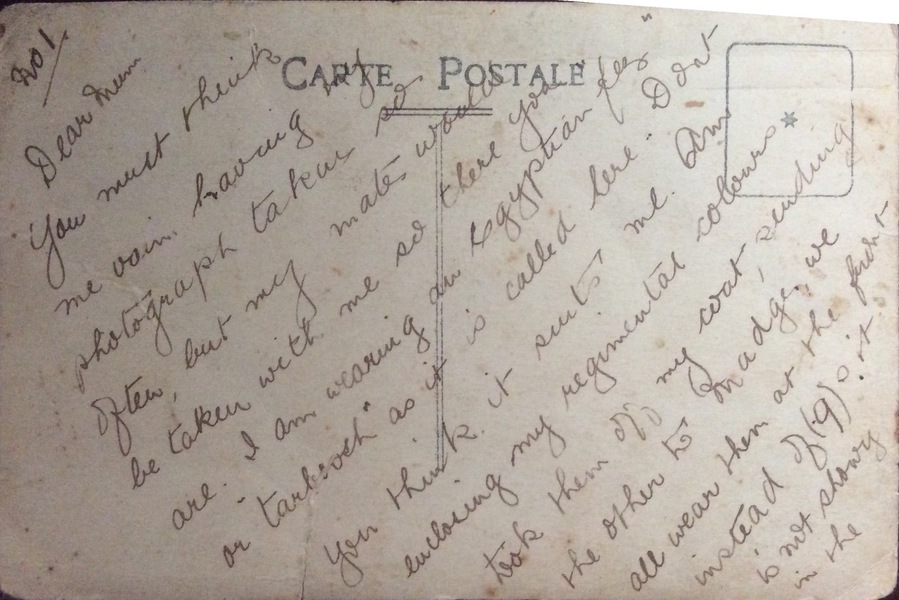 CARTE POSTALE
No 1.
Dear Mum
You must think
me vain having my
photograph taken so
often, but my mates would
be taken with me so there you
are. I am wearing an Egyptian fez"
or "tarboosh" as it is called here. Dont
you think it suits me. Am
enclosing my regimental colours
took them off my coat, sending
the other to Madge, we
all wear them at the front
instead of (19) s it
is not showy
in the